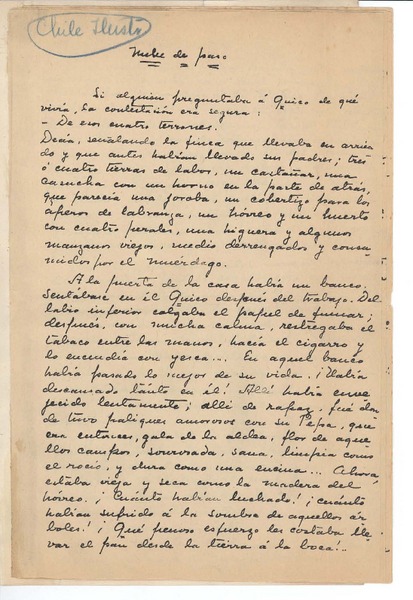 Chile Ilustr
Nube de paso
Si alguien preguntaba á Quico de qué
vivía, la contestación era segura:
— De esos cuatro terrones.
Decía, señalando la finca que llevaba en arrien
do y que antes habían llevado sus padres; tres
ó cuatro tierras de labor, un castañar, una
casucha con un horno en la parte de atrás,
que parecía una joroba, un cobertizo para los
aperos de labranza, un hórreo y un huerto
con cuatro perales, una higuera y algunos
manzanos viejos, medio derrengados y consu
midos por el muérdago.
A la puerta de la casa había un banco.
Sentábase en él Quico después del trabajo. Del
labio inferior colgaba el papel de fumar;
después, con mucha calma, restregaba el
tabaco entre las manos, hacía el cigarro y
lo encendía con yesca... En aquel banco
había pasado lo mejor de su vida. ¡Había
descansado tánto en él! Allí había enve
jecido lentamente; allí de rapaz, fué dón
de tuvo paliques amorosos con su Pepa, que
era entonces, gala de la aldea, flor de aque
llos campos, sonrosada, sana, limpia como
el rocío, y dura como una encina... Ahora
estaba vieja y seca como la madera del
hórreo. ¡Cuánto habían luchado! ¡cuánto
habían sufrido á la sombra de aquellos ár
boles! ¡Qué penoso esfuerzo les costaba lle
var el pan désde la tierra á la boca!..